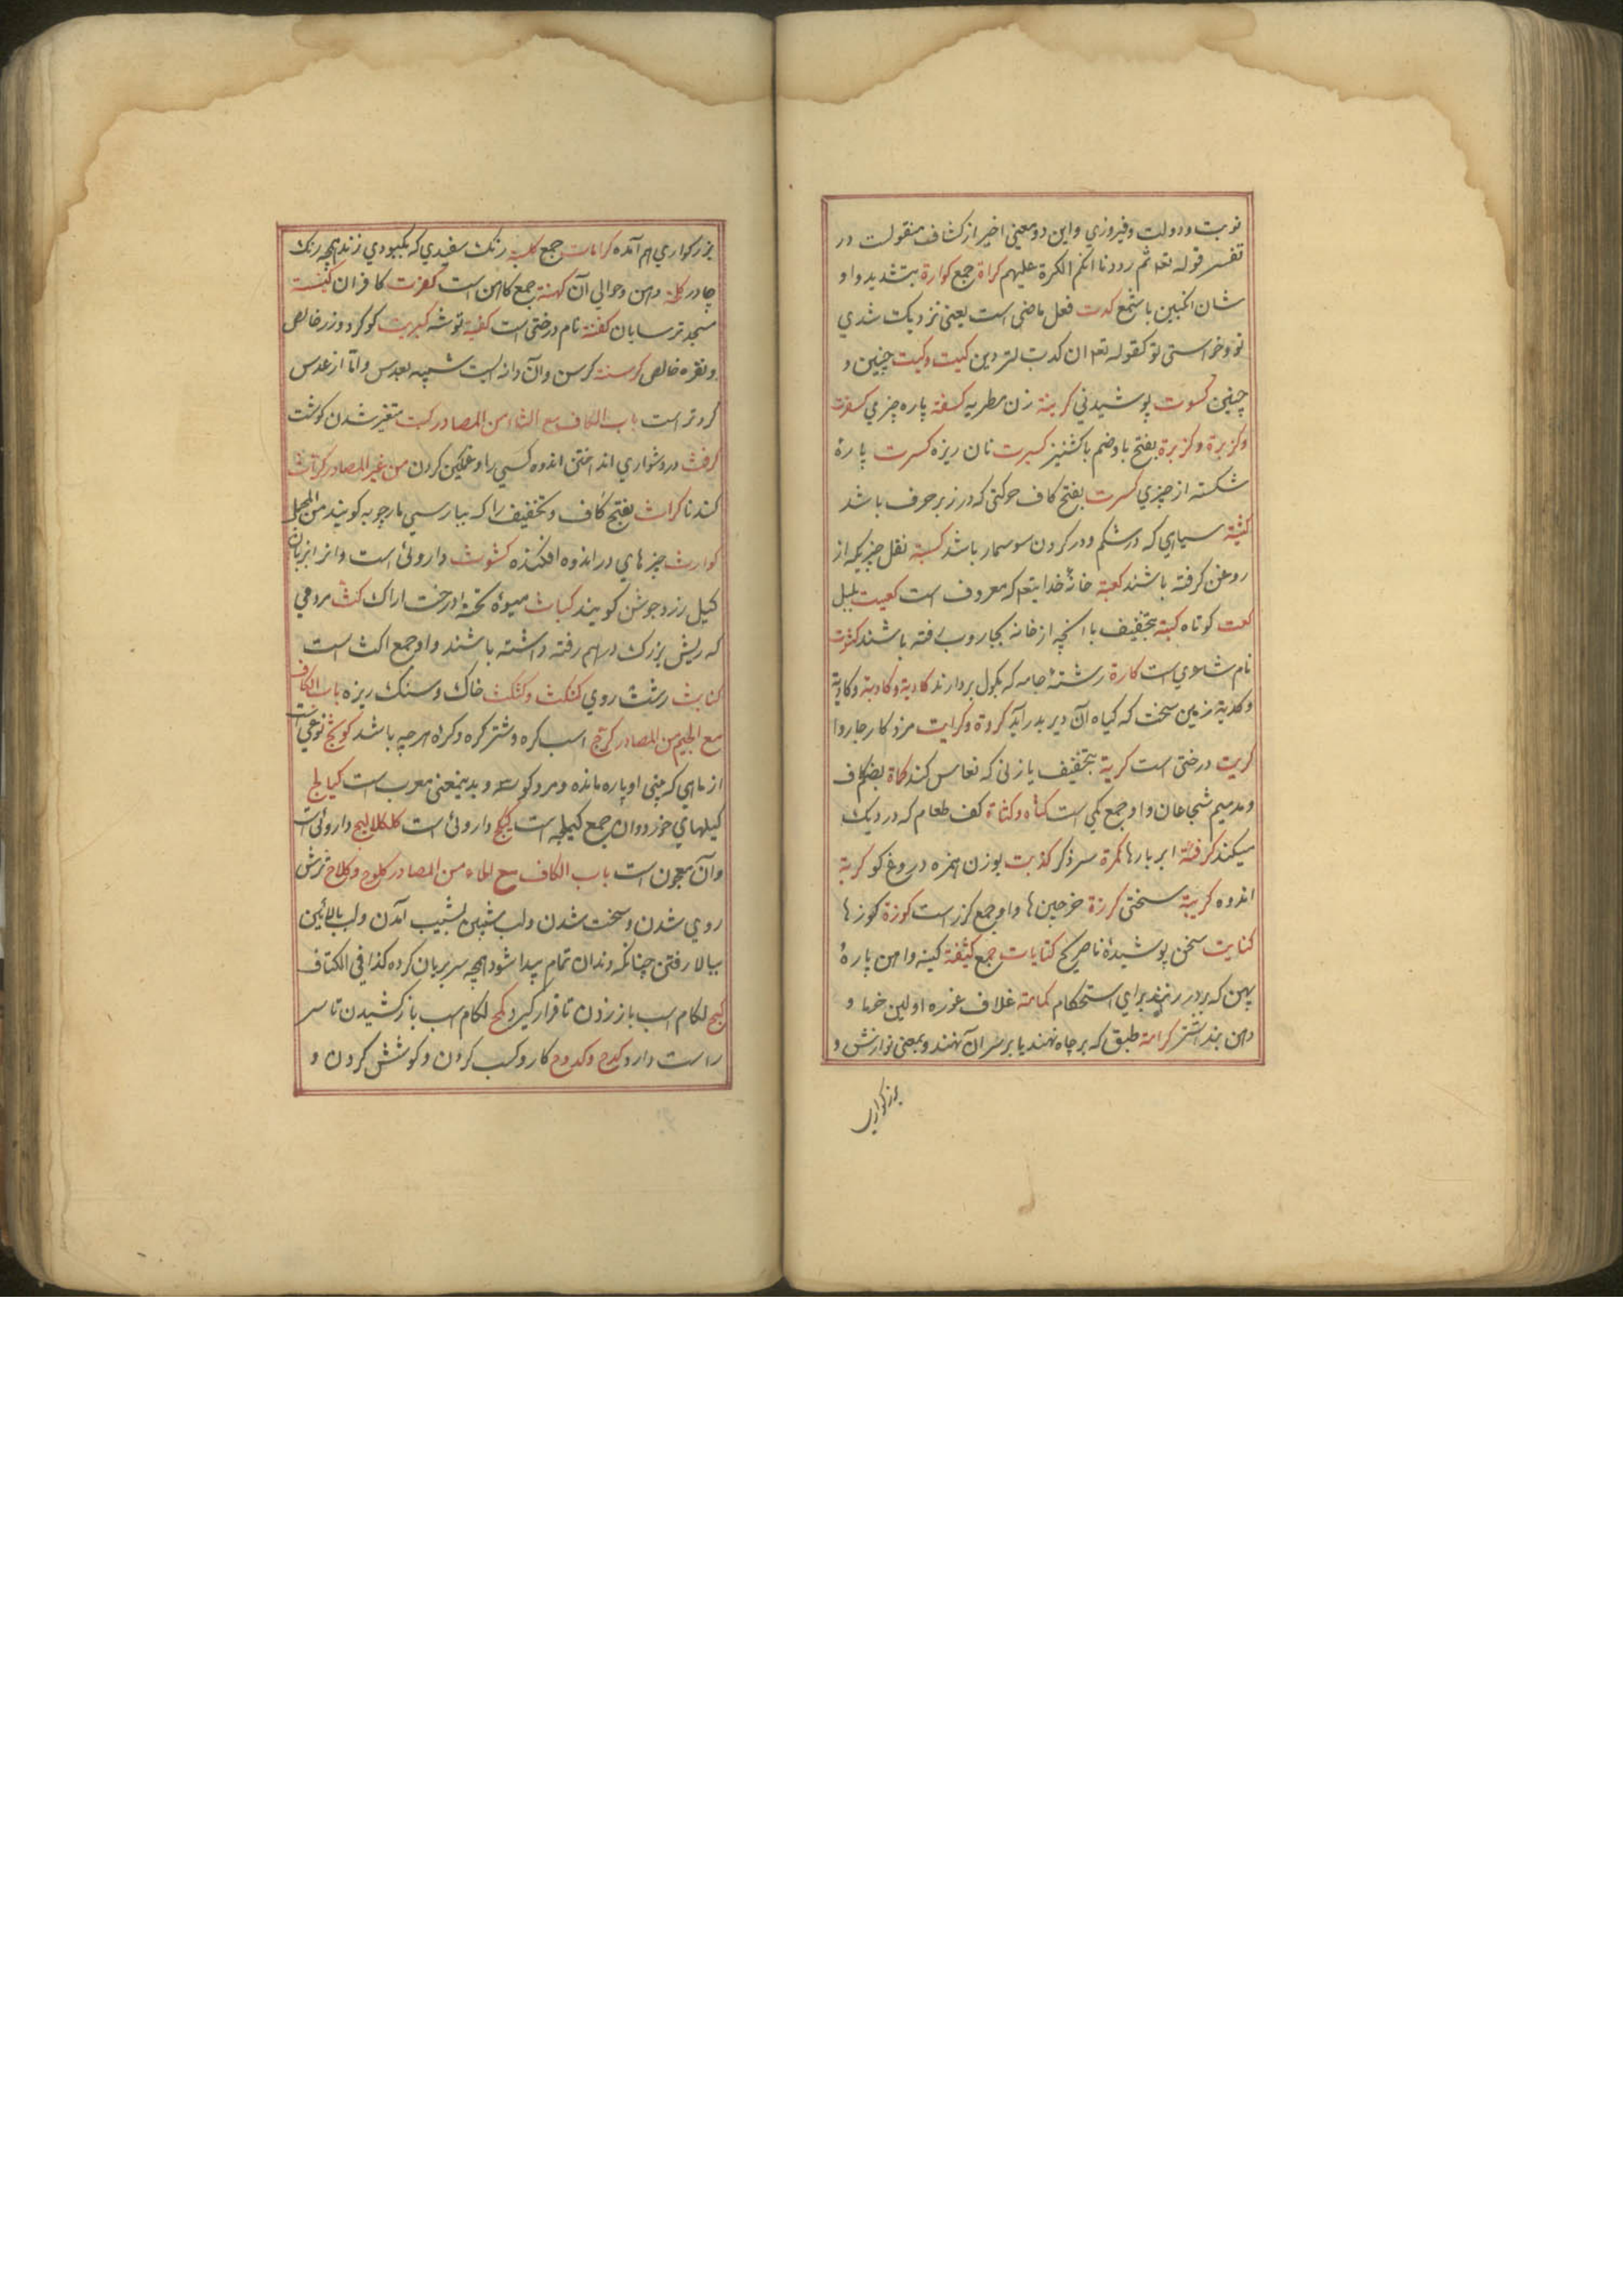 نوبت ودولت وفیروزي واین دو معنی اخیر از کشاف منقولست در
تفسیر قوله تعه ثم رددنا لکم الکرة علیهم کراة جمع کوارة بتشدید واو
شان انکبین باشمع کدت فعل ماضی است یعنی نزدیک شدي
تو وخواستی تو کقوله تعه ان کدت لتردین کیت وکیت چنین و
چنین کسوت پوشیدنی کرینة زن مطربه کسفة پاره چیزي
وکزبرة وکزبرة بفتح با وضم با کشنیز کسرت نان ریزه کسرت پارهٔ
شکسته از چیزي کسرت بفتح کاف حرکتی که در زیر حرف باشد
کشیة سیاهي که در شکم ودر کردن سوسمار باشد کسبة ثفل چیزیکه از
روغن کرفته باشند کعبة خانهٔ خدایتعه که معروف است کعیت بلبل
کعت کوتاه کبة بتخفیف با انچه از خانه بجاروب رفته باشند
نام شاعري است کارة رشتهٔ جامه که بکول بردارند کادیة وکادیة وکادیة
وکدیة زمین سخت که کیاه آن دیر بدر آید کروة وکرایت مزد کار چاروا
کریت درختی است کریة بتخفیف یا زنی که نعاس کند کماة بضم کاف
ومد میم شجاعان واو جمع کمی است کثاه وکثاة کف طعام که در دیک
میکند کرفئة ابر بارها کمرة سر ذکر کذبت بوزن همزه دروغ کو کربة
اندوه کریبة سختی کرزة خرجین ها واو جمع کرز است کوزة کوزها
کنایت سخن پوشیدهٔ ناصریح کنایات جمع کتیفة کینه واهن پارهٔ
پهن که بر در زنند براي استحکام کمامة غلاف غوره اولین خرما و
دهن بند اشتر کرامة طبق که بر چاه نهند یا بر سر آن نهند وبمعنی نوازش و
بزرکواري
بزرکواري هم آمده کرامات جمع کلبة رنک سفیدي که بکبودي زند همچه رنک
چادر کلة دهن وحوالي آن کهنة جمع کاهن است کفرت کافران کنیسة
مسجد ترسایان کفنة نام درختی است کفیة توشه کبریت کوکرد وزر خالص
ونقره خالص کرسنة کرسن وآن دانه ایست شبیه بعدس واما از عدس
کردتر است باب الکاف مع الثاء من المصادر کبث متغیر شدن کوشت
کرث در دشواري انداختن اندوه کسي را وغمکین کردن من غیر المصادر کراث
کندنا کراث بفتح کاف وتخفیف را که بپارسی مارچوبه کویند من المجمل
کوارث چیزهاي در اندوه افکنده کشوث داروئی است وانرا بزبان
کیل زرد جوشن کویند کباث میوهٔ پختهٔ درخت اراک کث مردمي
که ریش بزرک درهم رفته داشته باشند واو جمع اکث است
کنابث رشت روي کثکث وکثکث خاک وسنک ریزه باب الکاف
مع الجیم من المصادر کرج اسب کره وشتر کره وکراه هرچه باشد کوسج نوعي است
از ماهي که بینی او پاره مانده ومرد کوسه وبدینمعنی معرب است کیالج
کیلهاي خورد وان جمع کیلجه است کیکج داروئی است کلکلانج داروئی است
وآن معجون است باب الکاف مع الحاء من المصادر کلوح وکلاح ترش
روي شدن وسخت شدن ولب شیبین بشیب آمدن ولب بالائین
ببالا رفتن چنانکه دندان تمام پیدا شود همچه سر بریان کرده کذا في الکشاف
کبح لکام اسب باز زدن تا قرار کیرد کمح لکام اسب باز کشیدن تا سر
راست دارد کدح وکدوح کار وکسب کردن وکوشش کردن و